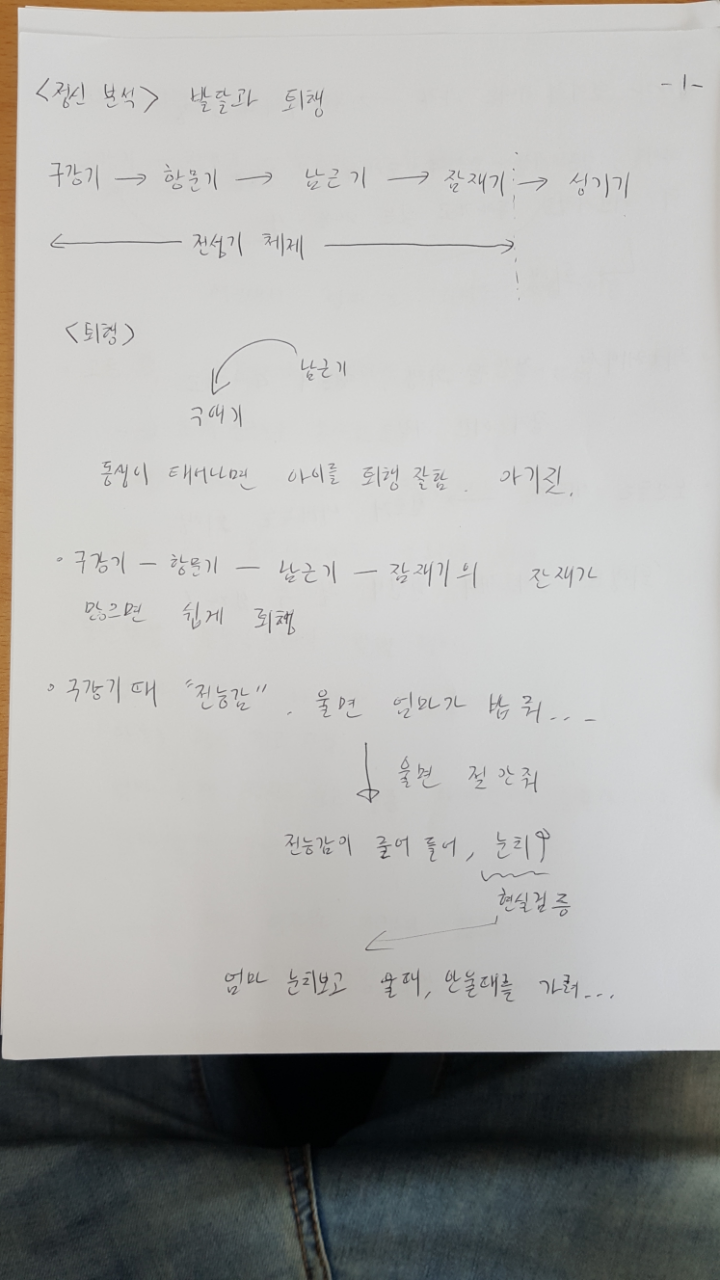 <정신 분석> 발달과 퇴행
-1-
구강기 → 항문기 → 남근기 → 잠재기 → 성기기
← 전성기 체제 →
<퇴행>
남근기
동생이 태어나면 아이를 퇴행 잘함. 아기짓.
• 구강기 - 항문기 - 남근기 - 잠재기의 잔재가
많으면 쉽게 퇴행
• 구강기 때 "전능감". 울면 엄마가 밥 줘...
울면 젖 안줘
전능감이 줄어 들어, 눈치↑
현실검증
엄마 눈치보고 울때, 안울때를 가려...